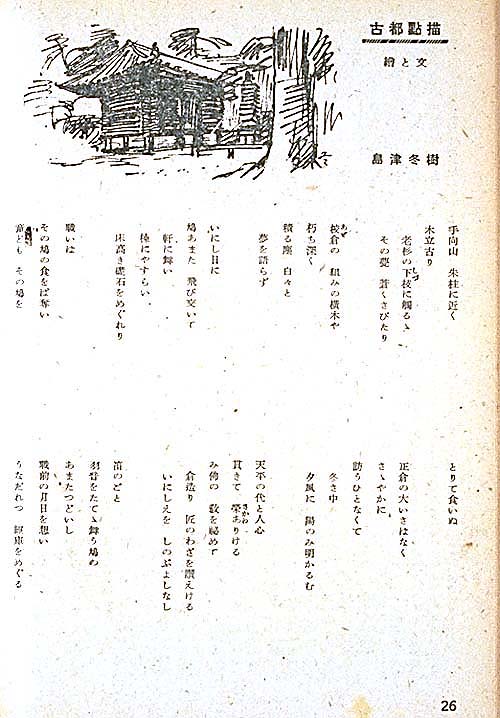 古都點描
繪と文
島津冬樹
手向山 朱柱に近く
木立古り
老杉の下技に觸るゝ
しづ
その甍 蒼くさびたり
校倉の 組みの横木や
あぜ
朽ち深く
積る塵 白々と
夢を語らず
いにし日に
鳩あまた 飛び交いて
軒に舞い
椽にやすらい
床高き礎石をめぐれり
戰いは
その鳩の食をば奪い
童ども その鳩を
とりて食いぬ
正倉の大いさはなく
さゝやかに
訪うひとなくて
冬さ中
夕風に 陽のみ明かるむ
天平の代と人心
貫きて 榮ありける
さかわ
み佛の 敎を祕めて
倉造り 匠のわざを讃えける
いにしえを しのぶよしなし
笛のごと
羽音をたてゝ舞う鳩の
あまたつどいし
戰前の月日を想い
うなだれつ 經庫をめぐる
26